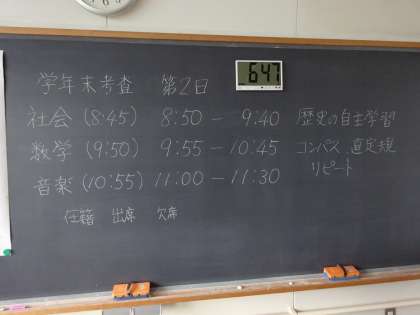 6:47
学年末考査 第2日
社会 (8:45) 8:50 — 9:40 歴史の自主学習
数学 (9:50) 9:55 — 10:45 コンパス 直定規
リピート
音楽 (10:55) 11:00 — 11:30
在籍 出席 欠席